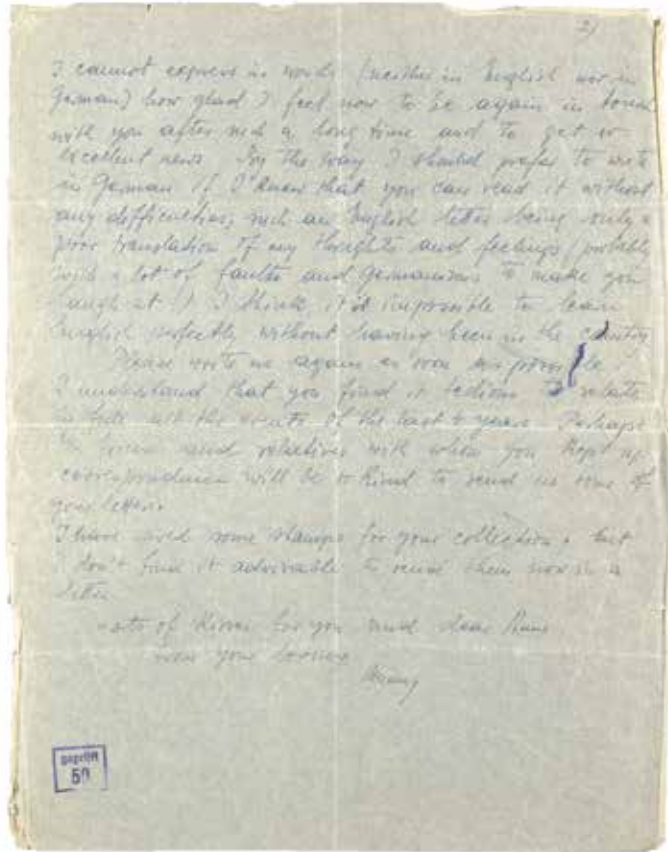 2)
I cannot express in words (neither in English nor in
German) how glad I feel now to be again in
with you after such a long time and to get so
excellent news. By the way I should prefer to write
in German if I knew that you can read it without
any difficulties, such an English letter being only a
poor translation of my thoughts and feelings (probably
with a lot of faults and germanisms to make you
laugh at it I think it is impossible to learn
English perfectly without having been in the country
Please write us again as soon as possible.
I understand that you find it tedious to relate
in full all the events of the last years. Perhaps
and relatives with whom you kept up
correspondence will be so kind to send us some of
your letters
I have some stamps for your collection, but
I don't find it advisable to send them now in a
letter
Lots of kisses for you and dear
from your
geprüft
50